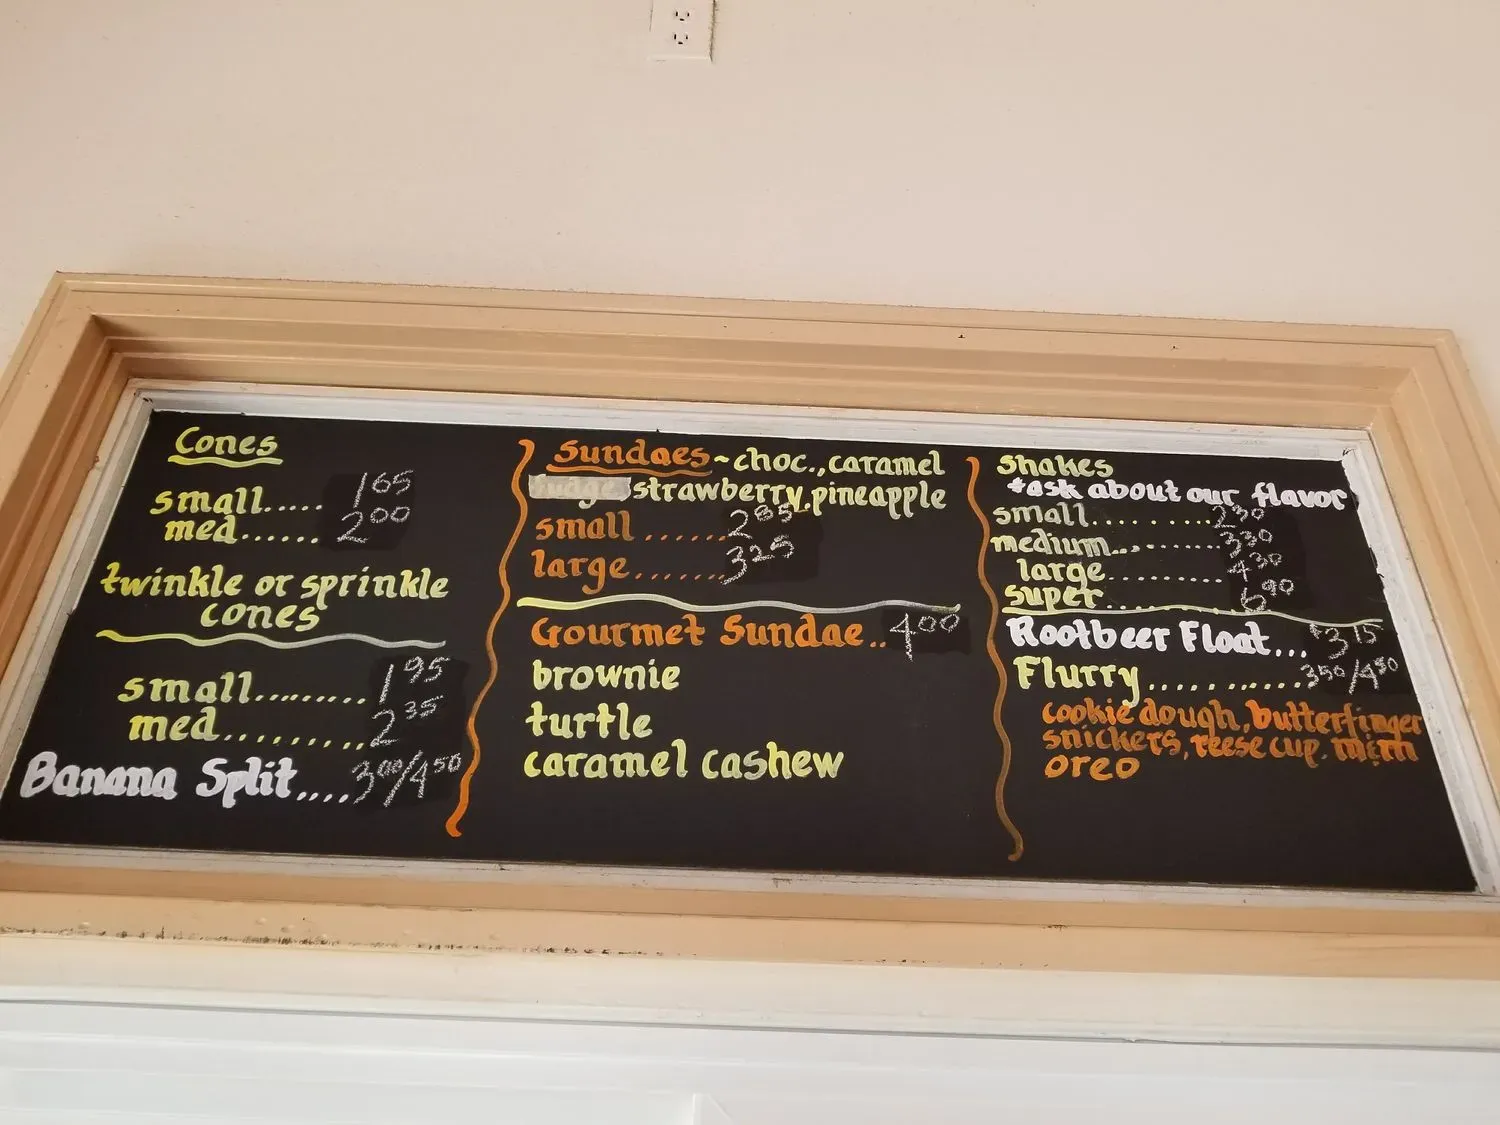 Cones
small..... 1.65
med...... 2.00
twinkle or sprinkle
cones
small......... 1.95
med.......... 2.35
Banana Split.... 3.00/4.50
Sundaes ~ choc., caramel
fudge, strawberry, pineapple
small ...... 2.85
large....... 3.25
Gourmet Sundae.. 4.00
brownie
turtle
caramel cashew
Shakes
*ask about our flavor
small.......... 2.30
medium.......... 3.30
large.......... 4.30
super.......... 6.90
Rootbeer Float... $3.15
Flurry........... 3.50/4.50
cookie dough, butterfinger
snickers, reese cup, m&m
oreo